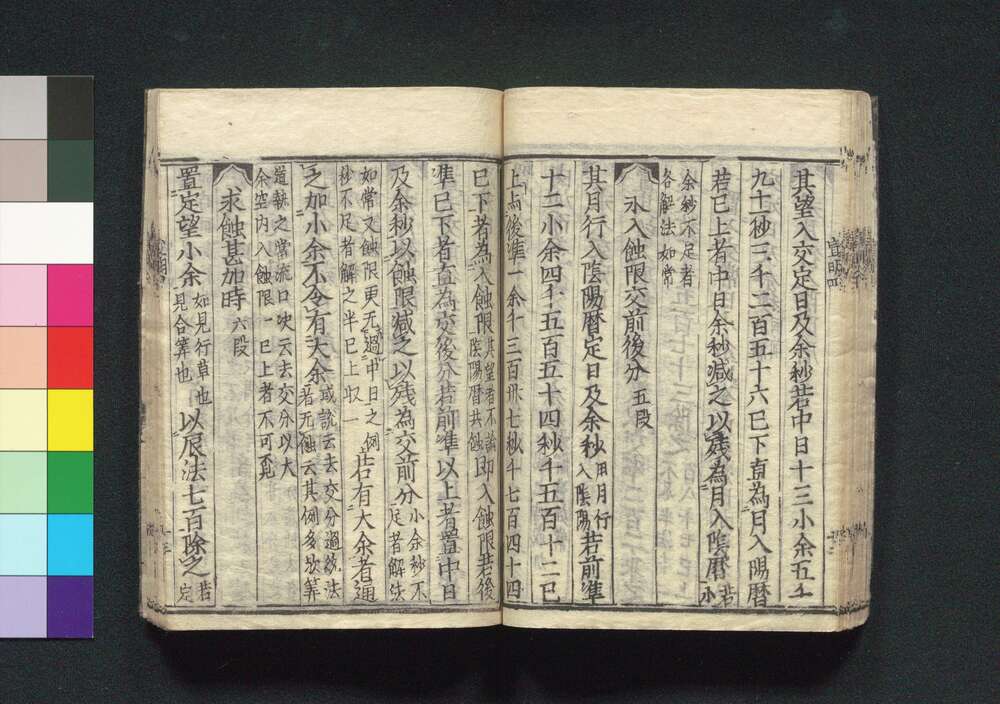 其望入交定日及余秒若中日十三小余五千
九十一秒三千二百五十六已下直為月入陽暦
若已上者中日余秒減之以残為月入陰暦 若小
余秒不足者
各解法如常
求入蝕限交前後分 五段
其月行入陰陽暦定日及余秒 用月行入陰陽 若前準
十二小余四千五百五十四秒千五百十二已
上与後準一余千三百卅七秒千七百四十四
已下者為入蝕限 其望者不論陰陽暦共蝕 即入蝕限若後
準已下者直為交後分若前準以上者置中日
及余秒以蝕限減之以残為交前分 小余秒不足者解法
如常又蝕限更无過中日之例
秒不足者解之半已上収一 若有大余者通
之加小余不令有大余 或説云去交分過蝕法者无蝕云其例多欤筭
道執之常流口吹云去交分以大
余空内入蝕限一已上者不可免
求蝕甚加時 六段
置定望小余 如見行草也見合筭也 以辰法七百除之 若定
宣明四